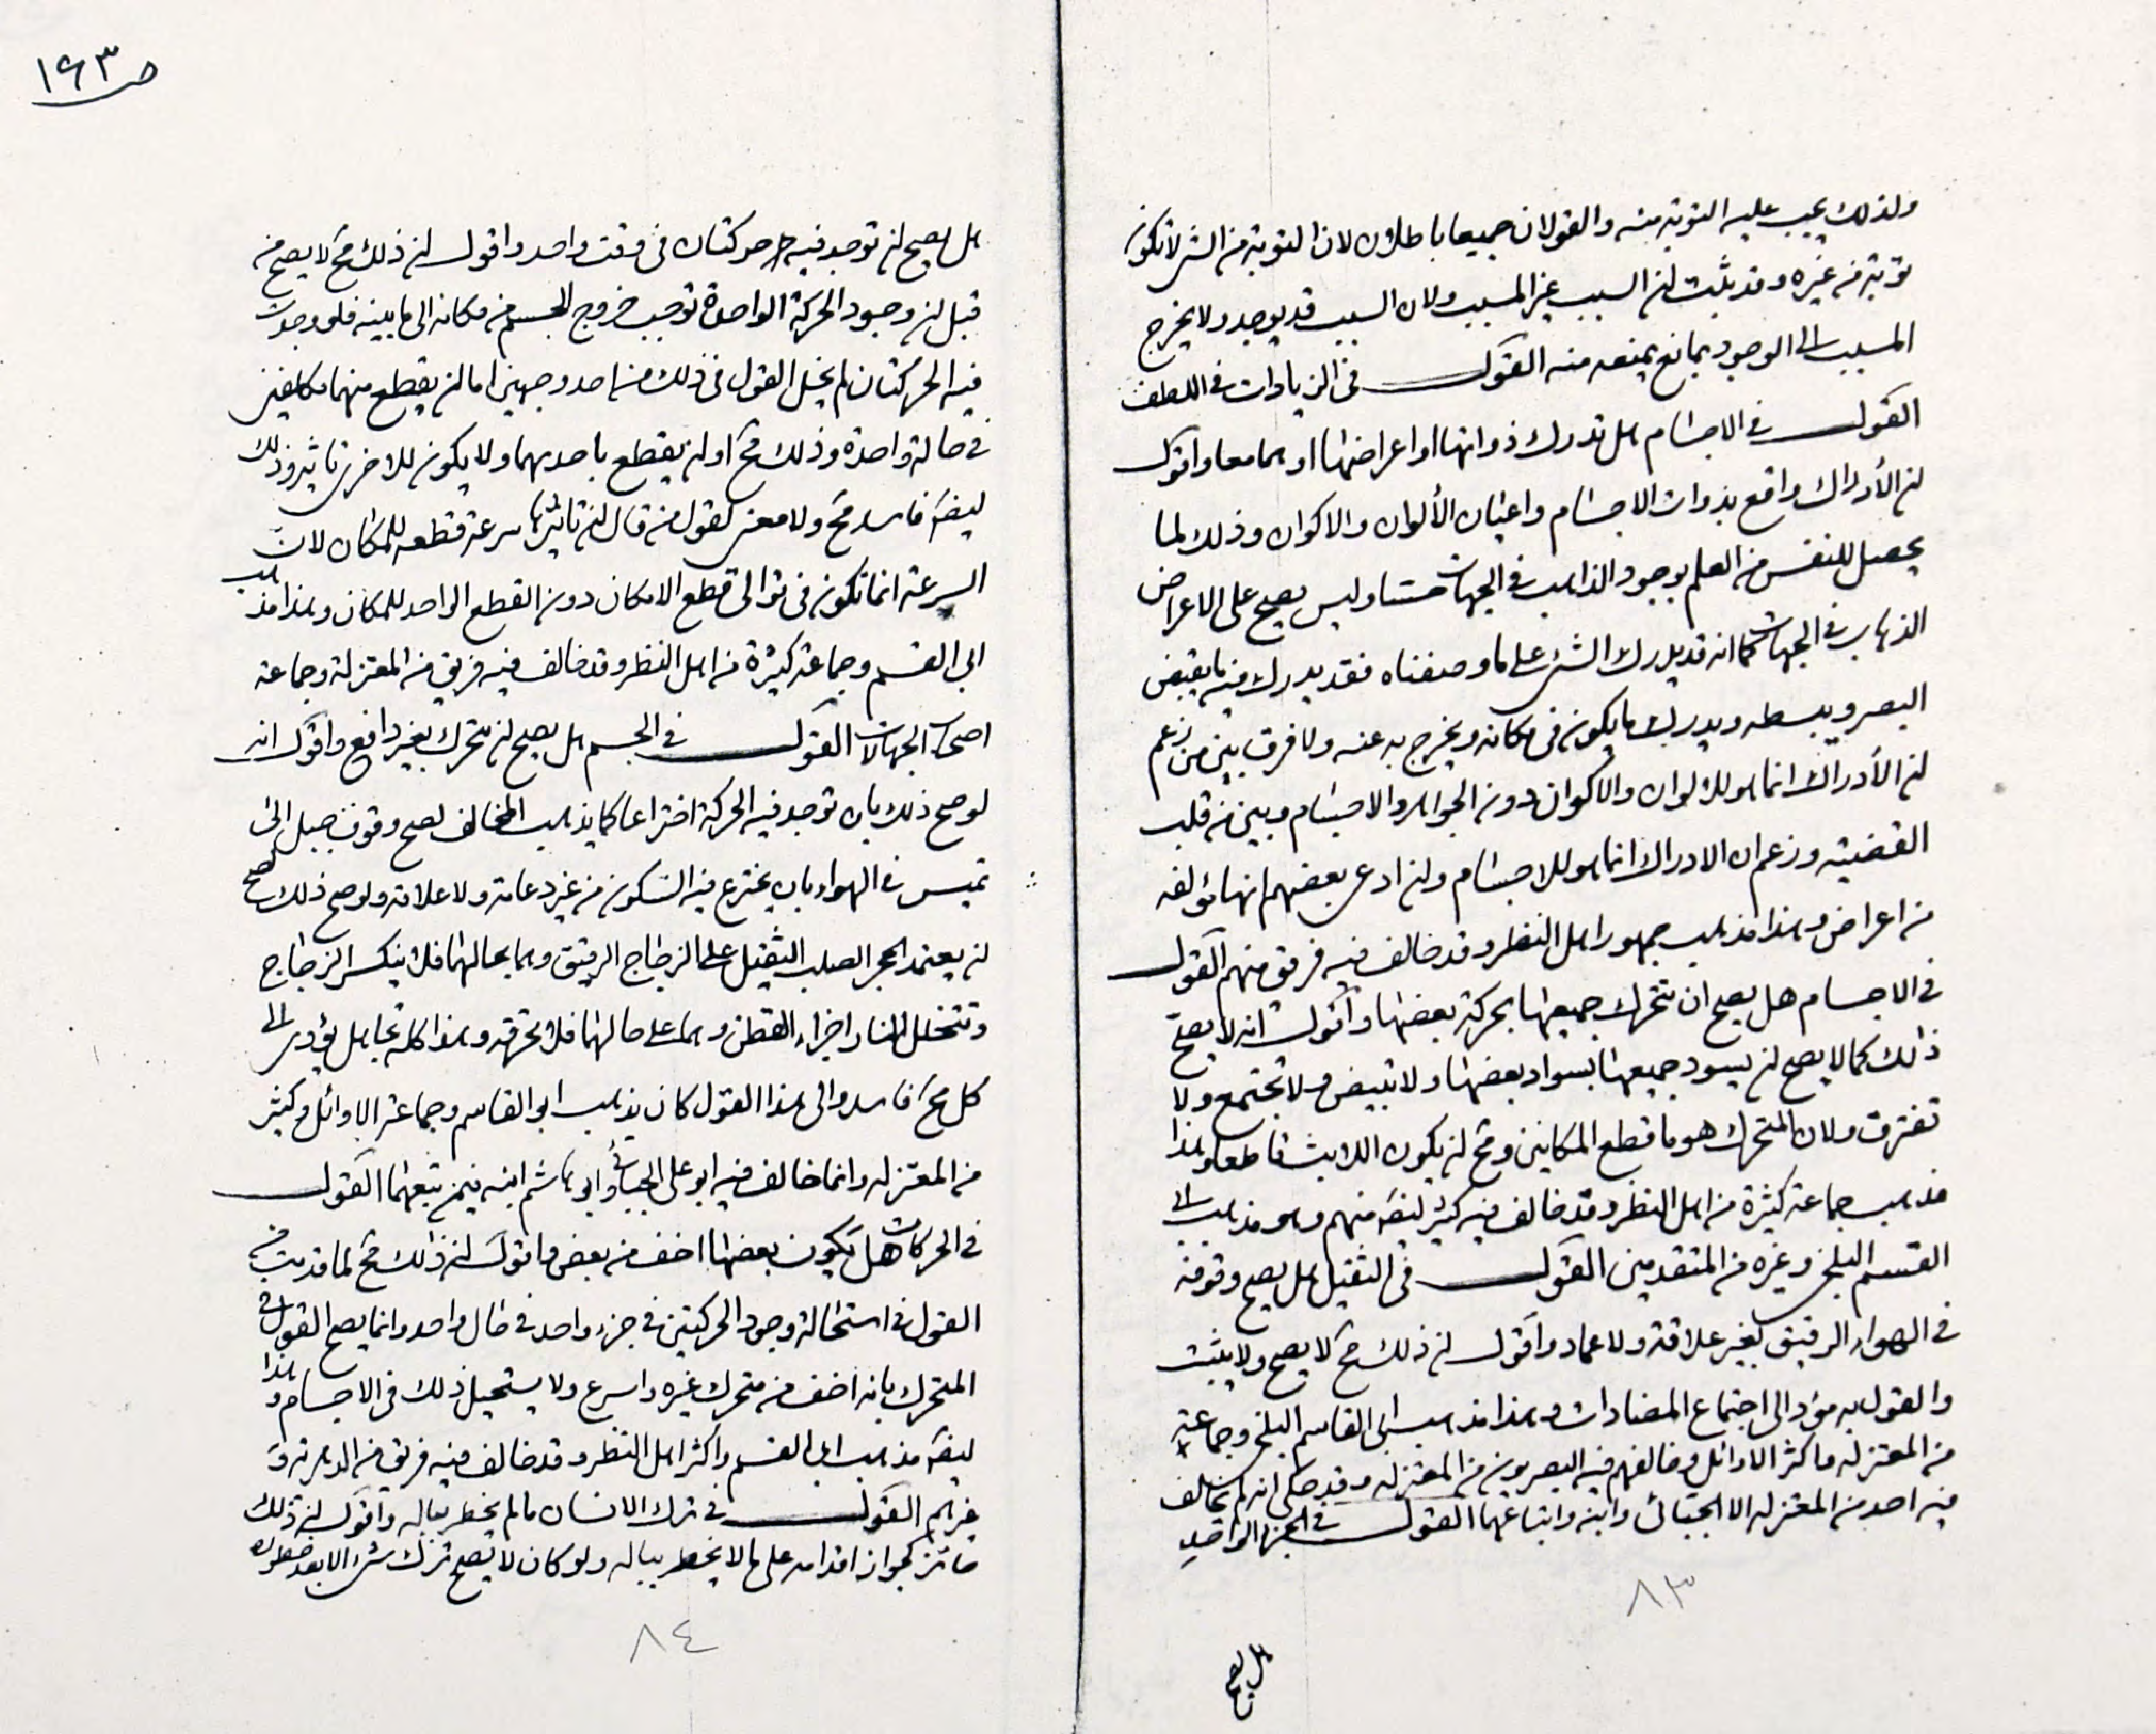 ولذلك يجب عليه التوبة منه والقولان جميعا باطلان لان التوبة من الشئ لا تكون
توبة من غيره وقد ثبت ان السبب غير المسبب ولان السبب قد يوجد ولا يخرج
المسبب الى الوجود بمانع يمنعه منه القول في الزيادات في اللطف
القول في الاجسام هل تدرك ذواتها او اعراضها او هما معا واقول
ان الأدراك واقع بذوات الاجسام واعيان الألوان والاكوان وذلك لما
يحصل للنفس من العلم بوجود الذاهب في الجهات حسا وليس يصح على الاعراض
الذهاب في الجهات كما انه قد يدرك الشئ على ما وصفناه فقد يدرك فيه ما يقبض
البصر ويبسطه ويدرك ما يكون في مكانه ويخرج به عنه ولا فرق بين من زعم
ان الأدراك انما هو للالوان والاكوان دون الجواهر والاجسام وبين من قلب
القضية وزعم ان الادراك انما هو للاجسام وان ادعى بعضهم انها مؤلفة
من اعراض وهذا مذهب جمهور اهل النظر وقد خالف فيه فريق منهم القول
في الاجسام هل يصح ان تتحرك جميعها بحركة بعضها واقول انه لا يصح
ذلك كما لا يصح ان يسود جميعها بسواد بعضها ولا تبيض ولا تجتمع ولا
تفترق ولان المتحرك هو ما قطع المكانين ومح ان يكون اللابث قاطعا وهذا
مذهب جماعة كثيرة من اهل النظر وقد خالف فيه كثير ايضه منهم وهو مذهب ابى
القسم البلخى وغيره من المتقدمين القول في الثقيل هل يصح وقوفه
في الهواء الرقيق بغير علاقة ولا عماد واقول ان ذلك مح لا يصح ولا يثبت
والقول به مؤد الى اجتماع المضادات وهذا مذهب ابى القاسم البلخى وجماعة
من المعتزله واكثر الاوائل وخالفهم فيه البصريون من المعتزله وقد حكى انه لم يخالف
فيه احد من المعتزله الا الجبائى وابنه واتباعهما القول في الجزء الواحد
٨٣
هل يصح
ص ١٤٣
هل يصح ان توجد فيه حركتان في وقت واحد واقول ان ذلك مح لا يصح من
قبل ان وجود الحركة الواحدة توجب خروج الجسم من مكانه الى ما يليه فلو وجدت
فيه الحركتان لم يخل القول في ذلك من احد وجهين اما ان يقطع منهما مكانين
في حالة واحدة وذلك مح او ان يقطع باحديهما ولا يكون للاخرى تاثير وذلك
ايضه فاسد مح ولا معنى لقول من قال ان تاثيرها سرعة قطعه للمكان لان
السرعة انما تكون في توالى قطع الامكان دون القطع الواحد للمكان وهذا مذهب
ابى القسم وجماعة كثيرة من اهل النظر وقد خالف فيه فريق من المعتزلة وجماعة
اصحاب الجهالات القول في الجسم هل يصح ان يتحرك بغير دافع واقول انه
لو صح ذلك بان توجد فيه الحركة اختراعا كما يذهب المخالف لصح وقوف جبل ابى
قبيس في الهواء بان يخترع فيه السكون من غير دعامة ولا علاقة ولو صح ذلك لصح
ان يعتمد الحجر الصلب الثقيل على الزجاج الرقيق وهما بحالهما فلا ينكسر الزجاج
وتتخلل النار اجزاء القطن وهما على حالهما فلا تحرقه وهذا كله تجاهل يؤدى الى
كل مح فاسد والى هذا القول كان يذهب ابو القاسم وجماعة الاوائل وكثير
من المعتزله وانما خالف فيه ابو على الجبائي وابو هاشم ابنه فيمن تبعهما القول
في الحركات هل يكون بعضها اخف من بعض واقول ان ذلك مح لما قدمت من
القول في استحالة وجود الحركتين في جزء واحد في حال واحد وانما يصح القول في
المتحرك بانه اخف من متحرك غيره واسرع ولا يستحيل ذلك في الاجسام وهذا
ايضه مذهب ابى القسم واكثر اهل النظر وقد خالف فيه فريق من الدهرية و
غيرهم القول في ترك الانسان ما لم يخطر بباله واقول ان ذلك
جائز كجواز اقدامه على ما لا يخطر بباله ولو كان لا يصح ترك شئ الا بعد خطوره
٨٤